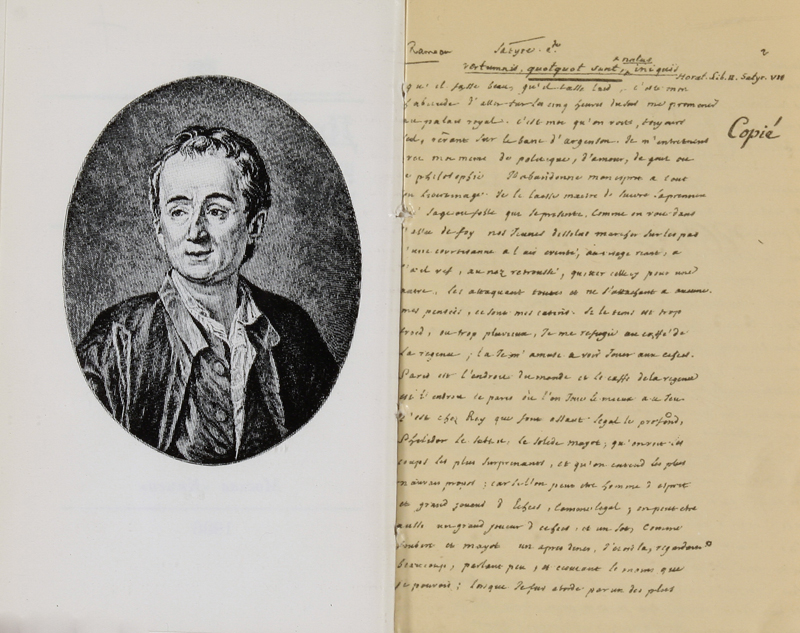 Rameau Satyre 2de 2
Vertumnis, quotquot sunt, natus iniquis
Horat. Lib. II. Satyr. VII
Copié
qu'il fasse beau, qu'il fasse laid, c'est mon
habitude d'aller sur les cinq heures du soir me promener
au palais royal. c'est moi qu'on voit, toujours
seul, rêvant sur le banc d'argenson. Je m'entretiens
avec moi meme de politique, d'amour, de gout ou
de philosophie J'abandonne mon esprit a tout
son libertinage. Je le laisse maitre de suivre la premiere
idée sage ou folle que se presente, comme on voit dans
l'allée de foy nos Jeunes dissolus marcher sur les pas
d'une courtisanne a l'air eventé, au visage riant, a
l'œil vif, au nez retroussé, quitter celle cy pour une
autre, les attaquant toutes et ne s'attachant a aucune.
mes pensées, ce sont mes catins. Si le tems est trop
froid, ou trop pluvieux, Je me refugie au caffé de
la regence; la Je m'amuse a voir Jouer aux echecs.
Paris est l'endroit du monde et le caffé de la regence
est l'endroit de paris où l'on Joue le mieux a ce Jeu.
c'est chez Rey que font assaut legal le profond,
Philidor le subtil, le solide mayot; qu'on voit les
coups les plus surprenants, et qu'on entend les plus
mauvais propos; car si l'on peut etre homme d'esprit
et grand joueur d'Echecs, comme legal; on peut etre
aussi un grand joueur d'echecs, et un sot, comme
foubert et mayot un apres diner, J'etois la, regardant
beaucoup, parlant peu, et ecoutant le moins que
Je pouvois; lorsque Je fus abordé par un des plus